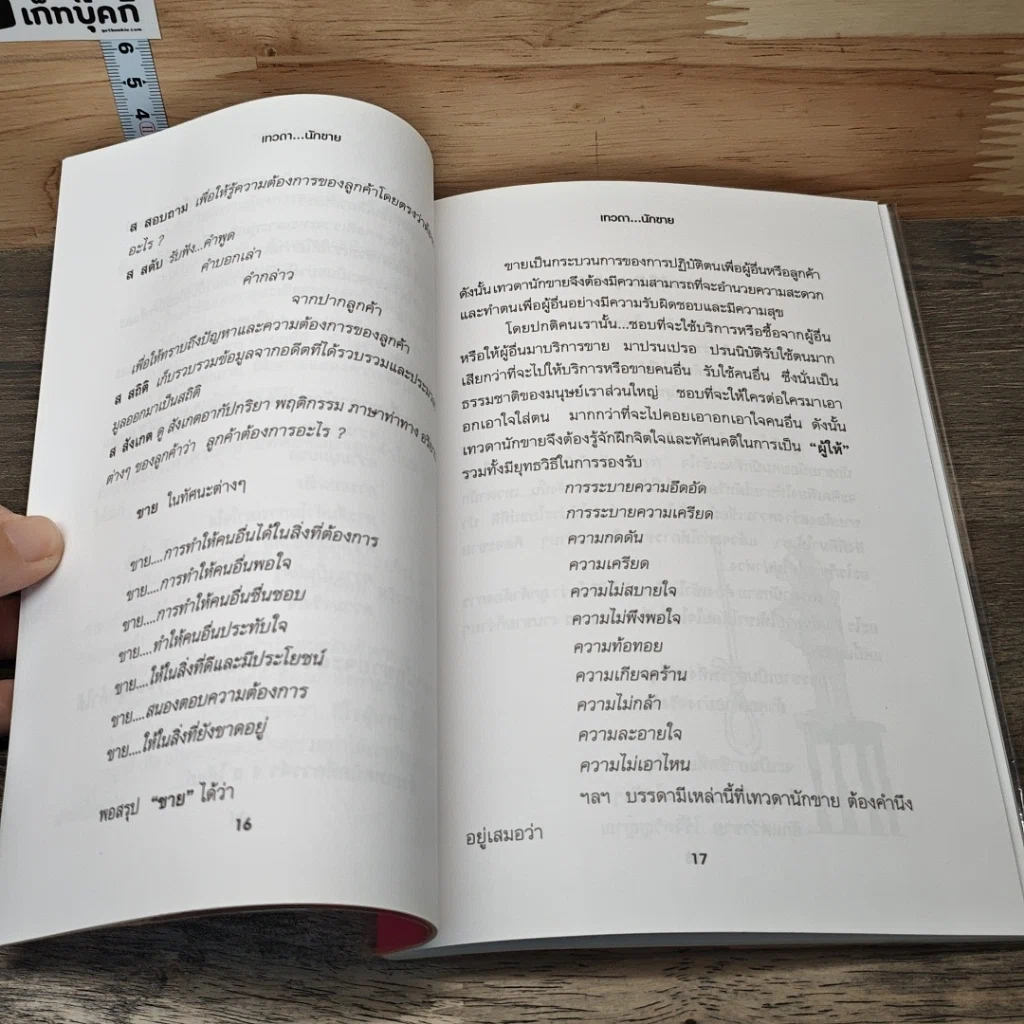 เก็ทบุ๊คกี้
getbookie.com
6
5
4
เทวดา...นักขาย
ส สอบถาม เพื่อให้รู้ความต้องการของลูกค้าโดยตรงว่า
อะไร ?
ส สดับ รับฟัง...คำพูด
คำบอกเล่า
คำกล่าว
จากปากลูกค้า
เพื่อให้ทราบถึงปัญหาและความต้องการของลูกค้า
ส สถิติ เก็บรวบรวมข้อมูลจากอดีตที่ได้รวบรวมและประมวล
มูลออกมาเป็นสถิติ
ส สังเกต ดู สังเกตอากัปกริยา พฤติกรรม ภาษาท่าทาง
ต่างๆ ของลูกค้าว่า ลูกค้าต้องการอะไร ?
ขาย ในทัศนะต่างๆ
ขาย....การทำให้คนอื่นได้ในสิ่งที่ต้องการ
ขาย....การทำให้คนอื่นพอใจ
ขาย....การทำให้คนอื่นชื่นชอบ
ขาย....ทำให้คนอื่นประทับใจ
ขาย....ให้ในสิ่งที่ดีและมีประโยชน์
ขาย....สนองตอบความต้องการ
ขาย....ให้ในสิ่งที่ยังขาดอยู่
พอสรุป “ขาย” ได้ว่า
16
เทวดา...นักขาย
ขายเป็นกระบวนการของการปฏิบัติตนเพื่อผู้อื่นหรือลูกค้า
ดังนั้นเทวดานักขายจึงต้องมีความสามารถที่จะอำนวยความสะดวก
และทำตนเพื่อผู้อื่นอย่างมีความรับผิดชอบและมีความสุข
โดยปกติคนเรานั้น...ชอบที่จะใช้บริการหรือซื้อจากผู้อื่น
หรือให้ผู้อื่นมาบริการขาย มาปรนเปรอ ปรนนิบัติรับใช้ตนมาก
เสียกว่าที่จะไปให้บริการหรือขายคนอื่น รับใช้คนอื่น ซึ่งนั่นเป็น
ธรรมชาติของมนุษย์เราส่วนใหญ่ ชอบที่จะให้ใครต่อใครมาเอา
อกเอาใจใส่ตน มากกว่าที่จะไปคอยเอาอกเอาใจคนอื่น ดังนั้น
เทวดานักขายจึงต้องรู้จักฝึกจิตใจและทัศนคติในการเป็น “ผู้ให้”
รวมทั้งมียุทธวิธีในการรองรับ
การระบายความอึดอัด
การระบายความเครียด
ความกดดัน
ความเครียด
ความไม่สบายใจ
ความไม่พึงพอใจ
ความท้อทอย
ความเกียจคร้าน
ความไม่กล้า
ความละอายใจ
ความไม่เอาไหน
ฯลฯ บรรดามีเหล่านี้ที่เทวดานักขาย ต้องคำนึง
อยู่เสมอว่า
17